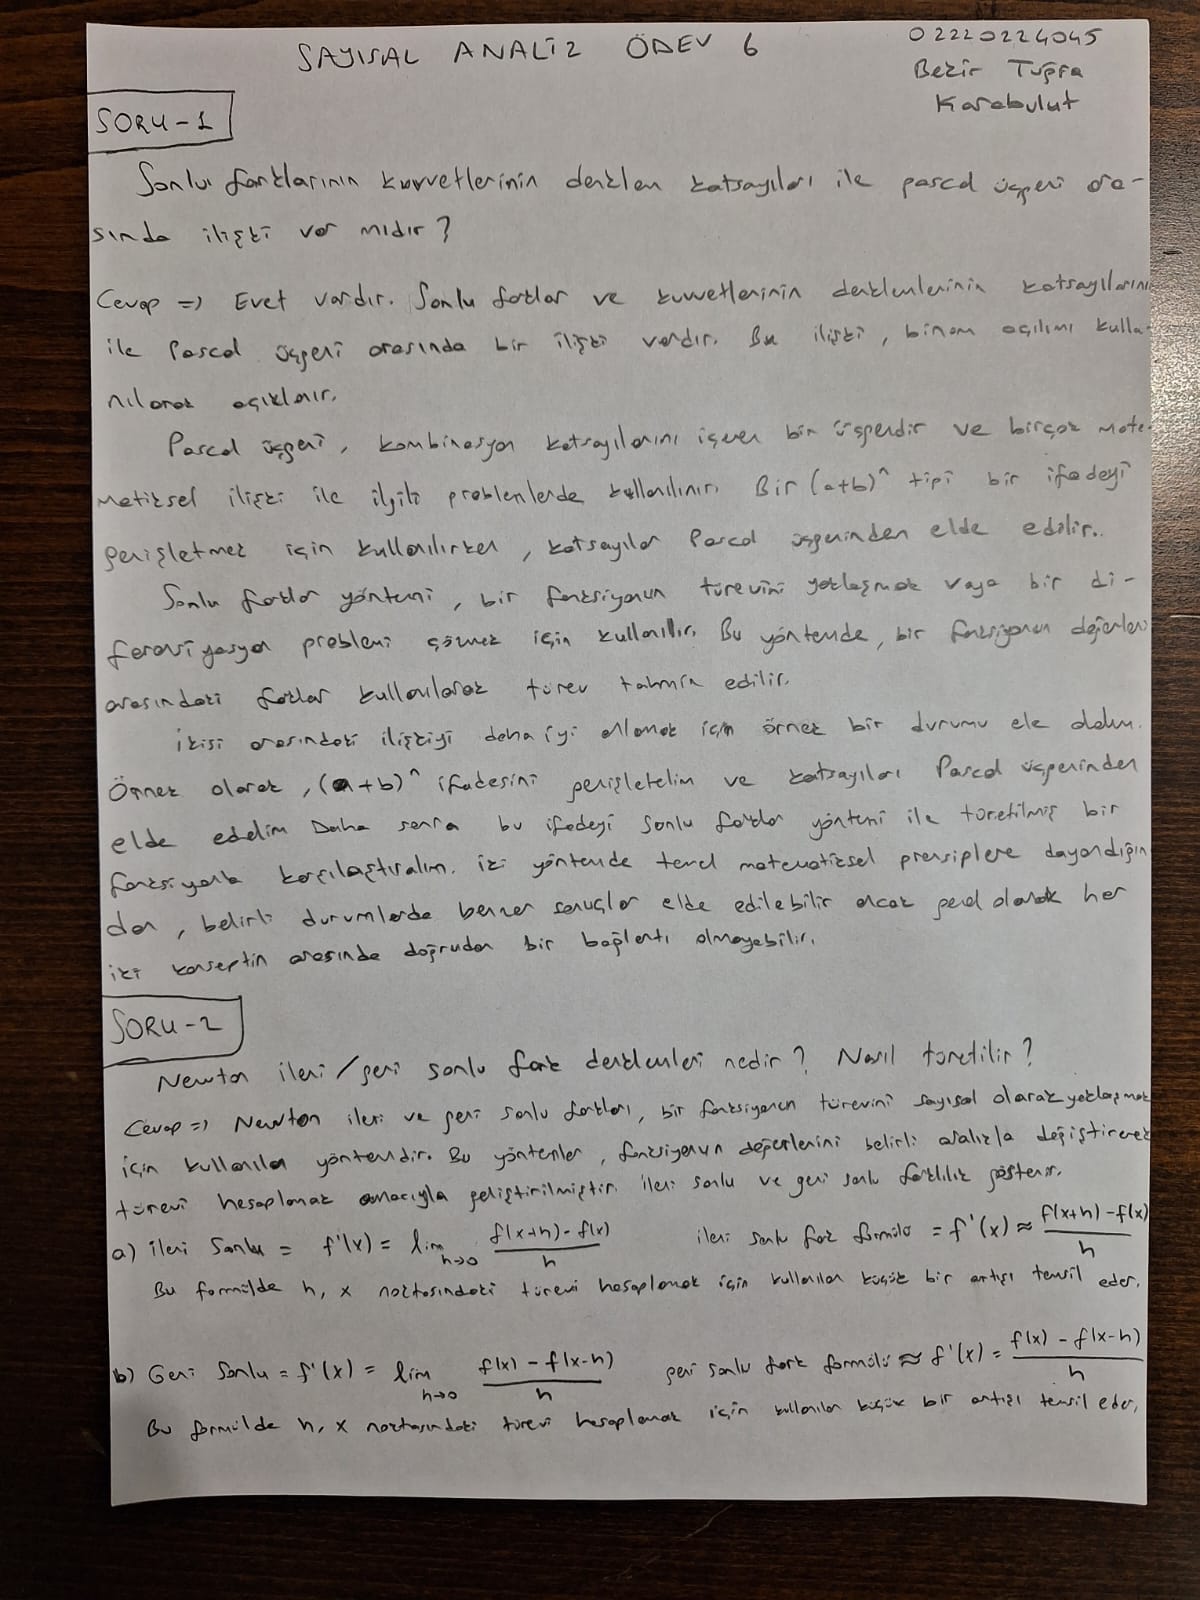 SAYISAL ANALİZ ÖDEV 6
02220224045
Bekir Tuğra
Karabulut
SORU-1
Sonlu farklarının kuvvetlerinin denklem katsayıları ile pascal üçgeni ara-
sında ilişki var mıdır?
Cevap => Evet vardır. Sonlu farklar ve kuvvetlerinin denklemlerinin katsayılarını
ile Pascal üçgeni arasında bir ilişki vardır. Bu ilişki, binom açılımı kulla-
nılarak açıklanır.
Pascal üçgeni, kombinasyon katsayılarını içeren bir üçgendir ve birçok mate-
matiksel ilişki ile ilgili problemlerde kullanılınır. Bir (a+b)^n tipi bir ifadeyi
genişletmek için kullanılırken, katsayılar Pascal üçgeninden elde edilir..
Sonlu farklar yöntemi, bir fonksiyonun türevini yaklaşmak veya bir di-
feransiyasyon problemi çözmek için kullanılır. Bu yöntemde, bir fonksiyonun değerleri
arasındaki farklar kullanılarak türev tahmin edilir.
İkisi arasındaki ilişkiyi daha iyi anlamak için örnek bir durumu ele alalım.
Örnek olarak, (a+b)^n ifadesini genişletelim ve katsayıları Pascal üçgeninden
elde edelim Daha sonra bu ifadeyi sonlu farklar yöntemi ile türetilmiş bir
fonksiyonla karşılaştıralım. iki yöntemde temel matematiksel prensiplere dayandığın
dan, belirli durumlarda benzer sonuçlar elde edilebilir ancak genel olarak her
iki konseptin arasında doğrudan bir bağlantı olmayabilir.
SORU-2
Newton ileri/geri sonlu fark denklemleri nedir? Nasıl türetilir?
Cevap => Newton ileri ve geri sonlu farkları, bir fonksiyonun türevini sayısal olarak yaklaşmak
için kullanılan yöntemdir. Bu yöntemler, fonksiyonun değerlerini belirli aralıkla değiştirerek
türevi hesaplamak amacıyla geliştirilmiştir. ileri sonlu ve geri sonlu farklılık gösterir.
a) ileri Sonlu = f'(x) = lim h->0 f(x+h)-f(x) / h ileri sonlu fark formülü = f'(x) ≈ f(x+h)-f(x) / h
Bu formülde h, x noktasındaki türevi hesaplamak için kullanılan küçük bir artışı temsil eder.
b) Geri Sonlu = f'(x) = lim h->0 f(x) - f(x-h) / h geri sonlu fark formülü ≈ f'(x) = f(x) - f(x-h) / h
Bu formülde h, x noktasındaki türevi hesaplamak için kullanılan küçük bir artışı temsil eder,